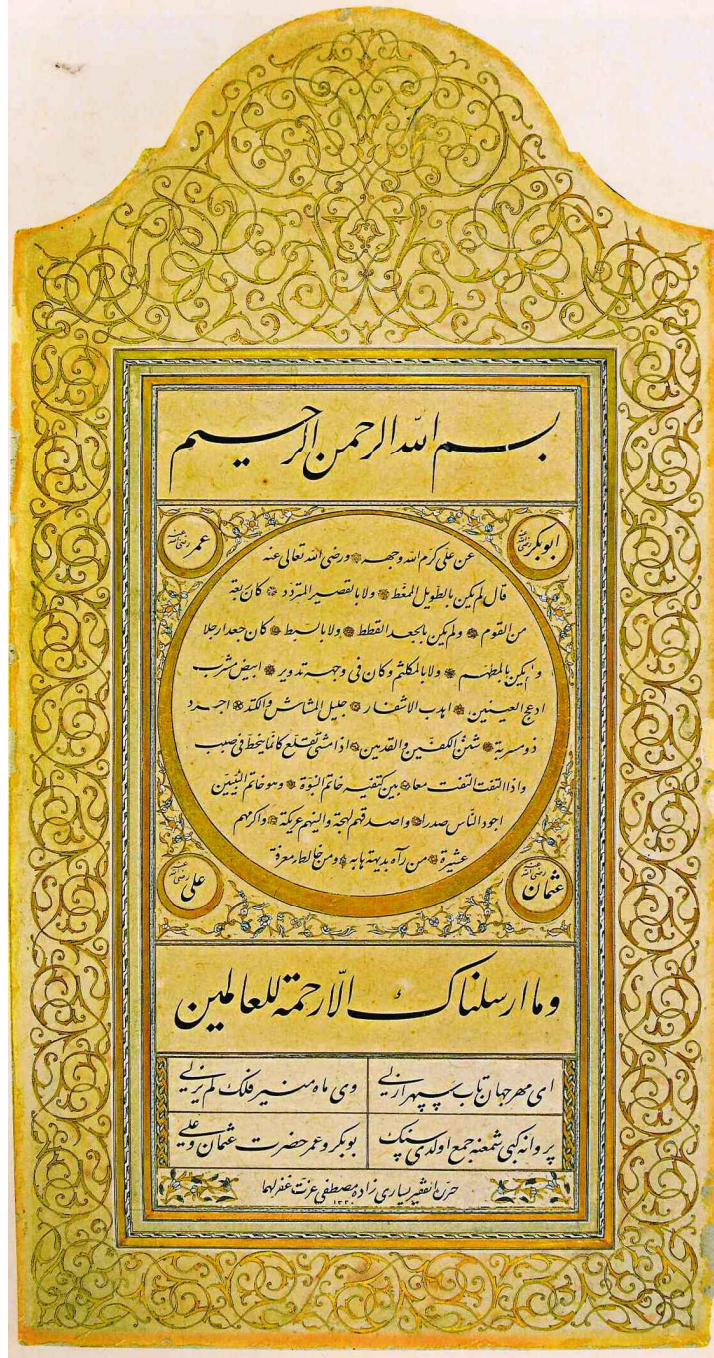 بسم الله الرحمن الرحيم
ابوبكر رضى الله عنه
عمر رضى الله عنه
عن على كرم الله وجهه ورضى الله تعالى عنه
قال لم يكن بالطويل الممغط ولا بالقصير المتردد كان ربعة
من القوم ولم يكن بالجعد القطط ولا بالسبط كان جعدا رجلا
ولم يكن بالمطهم ولا بالمكلثم وكان فى وجهه تدوير ابيض مشرب
ادعج العينين اهدب الاشفار جليل المشاش والكتد اجرد
ذو مسربة شثن الكفين والقدمين اذا مشى تقلع كانما ينحط فى صبب
واذا التفت التفت معا بين كتفيه خاتم النبوة وهو خاتم النبيين
اجود الناس صدرا واصدقهم لهجة والينهم عريكة واكرمهم
عشيرة من رآه بديهة هابه ومن خالطه معرفة
عثمان رضى الله عنه
على رضى الله عنه
وما ارسلناك الّا رحمة للعالمين
اى مهر جهان تاب سپهر ازلى وى ماه منير فلك لم يزلى
پروانه كبى شمعنه جمع اولدى سنك بوبكر و عمر حضرت عثمان و على
حرره الفقير يسارى زاده مصطفى عزت غفر لهما